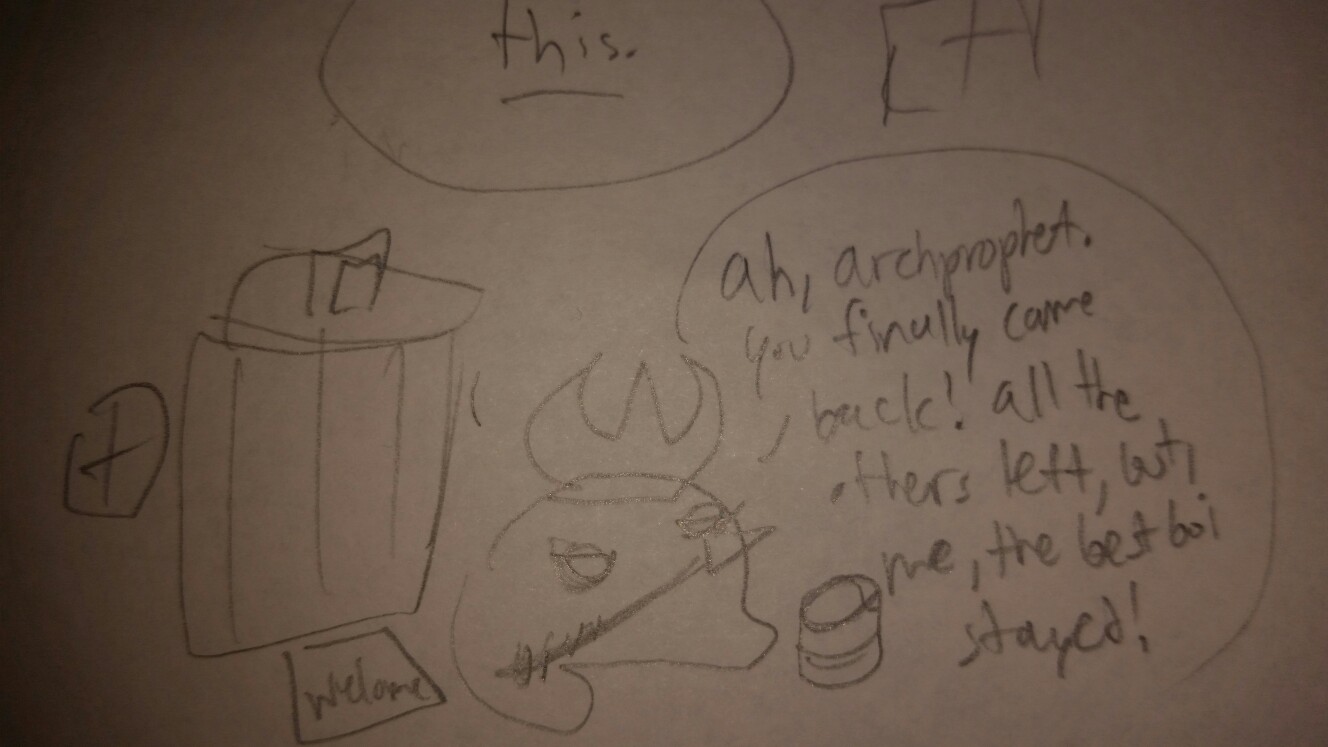 this.
ah, archprophet.
you finally came
back! all the
others left, but,
me, the best boi
stayed!
welome